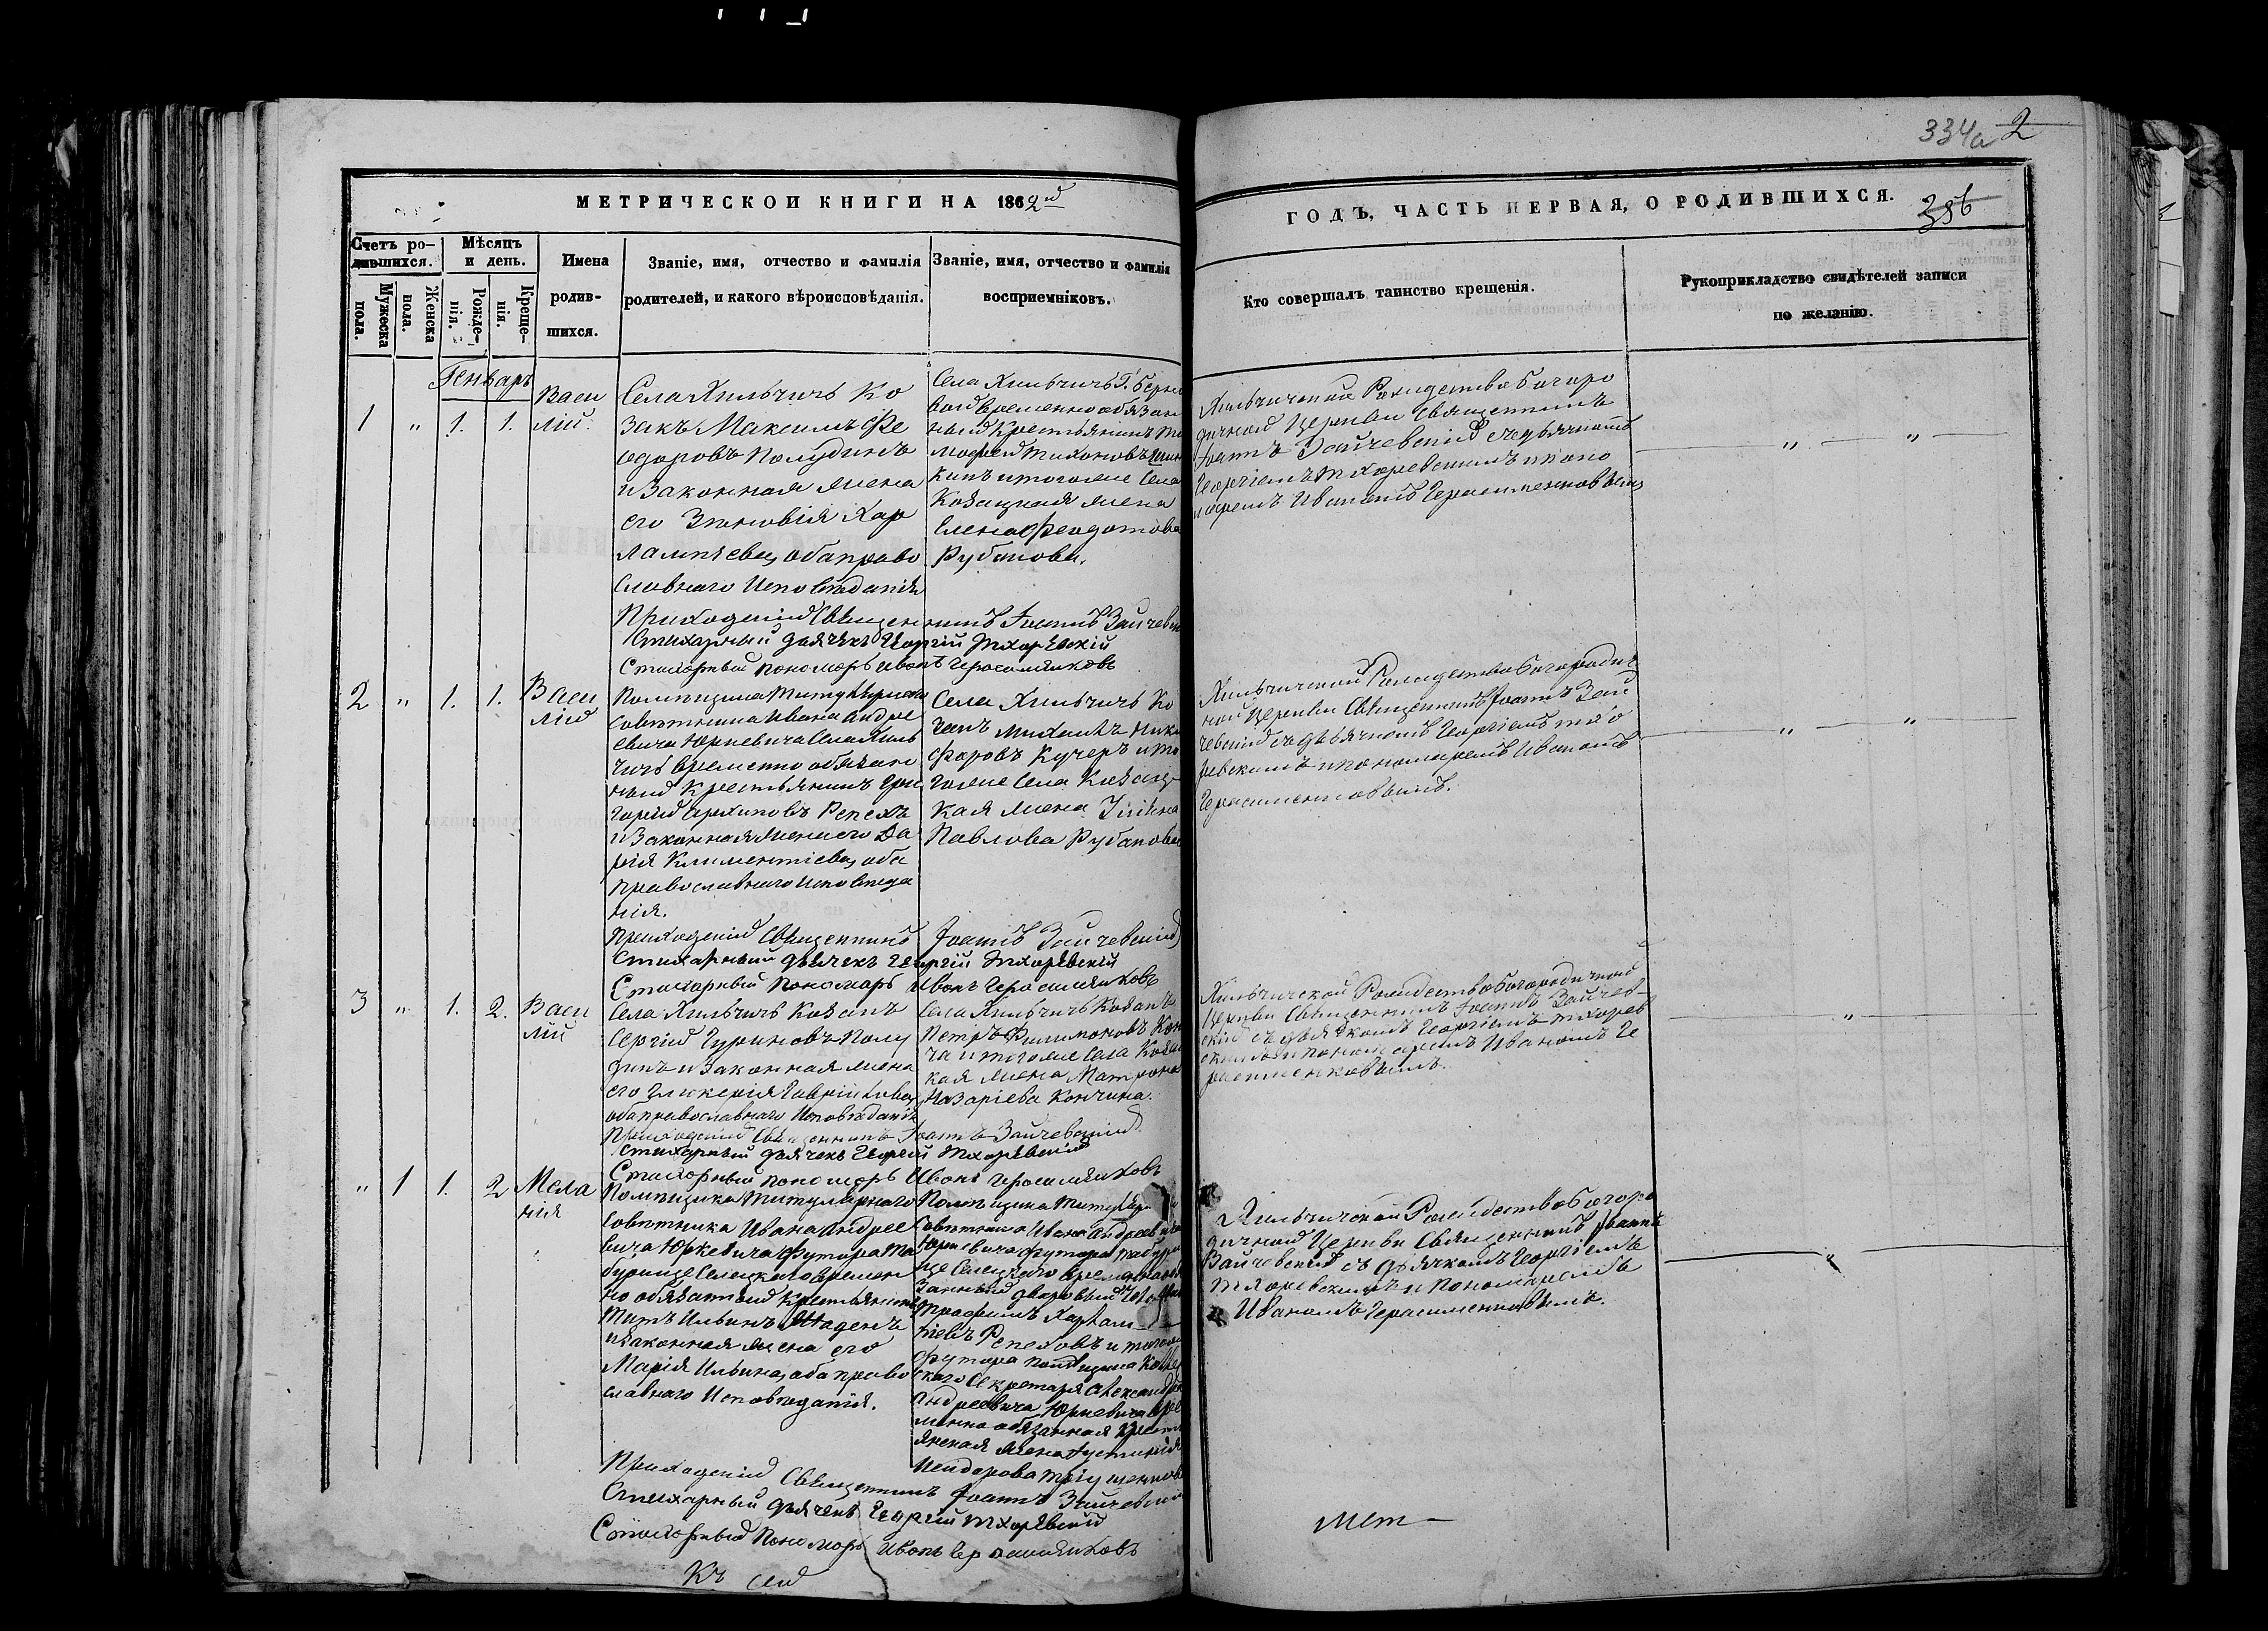 334а 2
МЕТРИЧЕСКОИ КНИГИ НА 1862й
ГОДЪ, ЧАСТЬ ПЕРВАЯ, О РОДИВШИХСЯ.
Счетъ ро-
дившихся.
Мужеска
пола.
Женска
пола.
Мѣсяцъ
и день.
Рожде-
нія.
Креще-
нія.
Имена
родив-
шихся.
Званіе, имя, отчество и фамилія
родителей, и какого вѣроисповѣданія.
Званіе, имя, отчество и фамилія
восприемніковъ.
Кто совершалъ таинство крещенія.
Рукоприкладство свидѣтелей записи
по желанію.
Генварь
1 " 1. 1.
Васи
лій.
Села Хильчичь Ко
закъ Максимъ Фе
одоровъ Полудинъ
и Законная жена
его Зѣновія Хар
лампіева, оба право
славнаго Исповѣданія
Села Хильчичь
временно обязан
ный Крестьянинъ Ти
мофей Тихоновъ
и тогоже Села
Козацкая жена
Елена Феодотова
Рубанова.
Хильчичской Рождество Богоро
дичной Церкви Священникъ
Іоаннъ Зайчевскій съ дьячкомъ
Георгіемъ Тхоревскимъ и поно
маремъ Иваномъ Герасименковымъ
Приходскій Священникъ Іоаннъ Зайчевскій
Стихарный дьячекъ Георгій Тхорѣвскій
Стихарный пономарь Иванъ Герасименковъ
2 " 1. 1.
Васи
лій
Помѣщика Титулярнаго
Совѣтника Ивана Андре
евича Юркевича Села Хиль
чичь временно обязан
ный Крестьянинъ Гри
горій Архиповъ Репехъ
и Законная жена его Да
рія Климентіева, оба
православнаго Исповѣда
нія.
Села Хильчичь Ко
закъ Михаилъ Ники
форовъ Кучеръ и то
гоже Села Козац-
кая жена
Павлова Рубанова
Хильчичской Рождество Богородич
ной Церкви Священникъ Іоаннъ Зай
чевскій съ дьячкомъ Георгіемъ Тхо
ревскимъ и пономаремъ Иваномъ
Герасименковымъ.
Приходскій Священникъ Іоаннъ Зайчевскій
Стихарный дьячекъ Георгій Тхорѣвскій
Стихарный пономарь Иванъ Герасименковъ
3 " 1. 2.
Васи
лій
Села Хильчичь Козакъ
Сергій Гуриновъ Полу
динъ и Законная жена
его Гликерія Гавриілова
оба православнаго Исповѣданія
Села Хильчичь Козакъ
Петръ Филимоновъ Кон
ча и тогоже Села Козац
кая жена Матрона
Назаріева Кончина.
Хильчичской Рождество Богородичной
Церкви Священникъ Іоаннъ Зайчев
скій съ дьячкомъ Георгіемъ Тхорев
скимъ и пономаремъ Иваномъ Ге
расименковымъ.
Приходскій Священникъ Іоаннъ Зайчевскій
Стихарный дьячекъ Георгій Тхорѣвскій
Стихарный пономарь Иванъ Герасименковъ
" 1 1. 2
Мела
нія
Помѣщика Титулярнаго
Совѣтника Ивана Андрее
вича Юркевича Футора Та
бурище Селецкого времен
но обязанный Крестьянинъ
Титъ Ильинъ
и законная жена его
Марія Ильина, оба право
славнаго Исповѣданія.
Помѣщика
Совѣтника Ивана Андреевича
Юркевича Футора Табури
ще Селецкого
дворовый
Трофимъ
Репеховъ и тогоже
Футора помѣщика
Секретаря Александра
Андреевича Юркевича вре
менно обязанная Крестьянская жена Іустинія
Хильчичской Рождество Богоро
дичной Церкви Священникъ Іоаннъ
Зайчевскій съ дьячкомъ Георгіемъ
Тхоревскимъ и Пономаремъ
Иваномъ Герасименковымъ.
Приходскій Священникъ Іоаннъ Зайчевскій
Стихарный дьячекъ Георгій Тхорѣвскій
Стихарный Пономарь Иванъ Герасименковъ
Къ сей
мет—